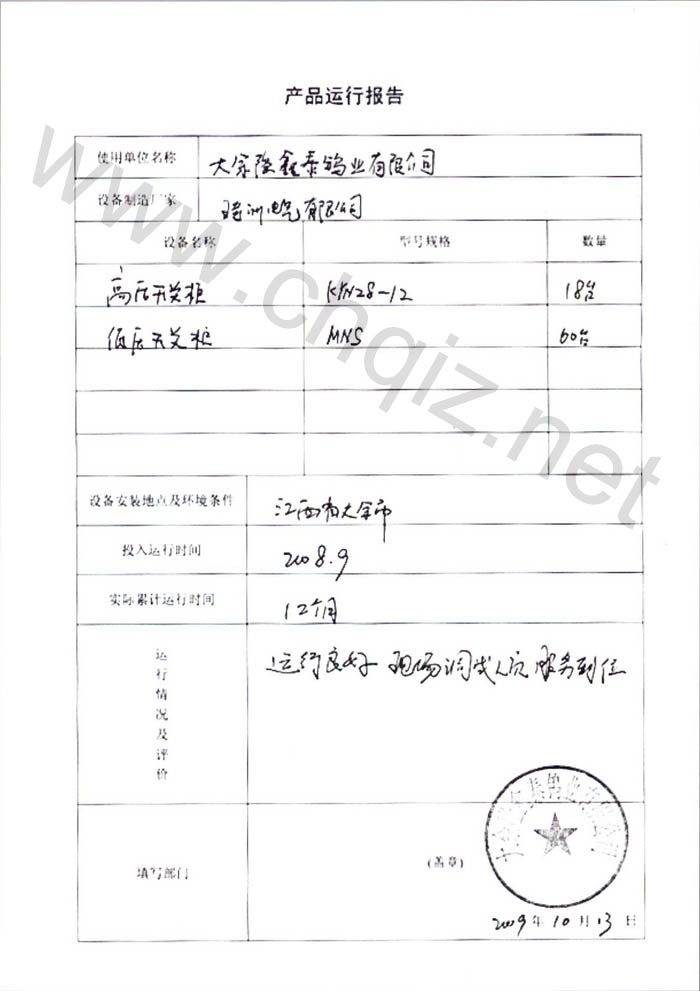 产品运行报告
使用单位名称 大余隆鑫泰钨业有限公司
设备制造厂家 电气有限公司
设备名称 型号规格 数量
高压开关柜 KYN28-12 18台
低压开关柜 MNS 60台
设备安装地点及环境条件 江西省大余市
投入运行时间 2008.9
实际累计运行时间 12个月
运行情况及评价 运行良好 现场调试人员服务到位
填写部门 (盖章)
2009年10月13日
www.chqiz.net